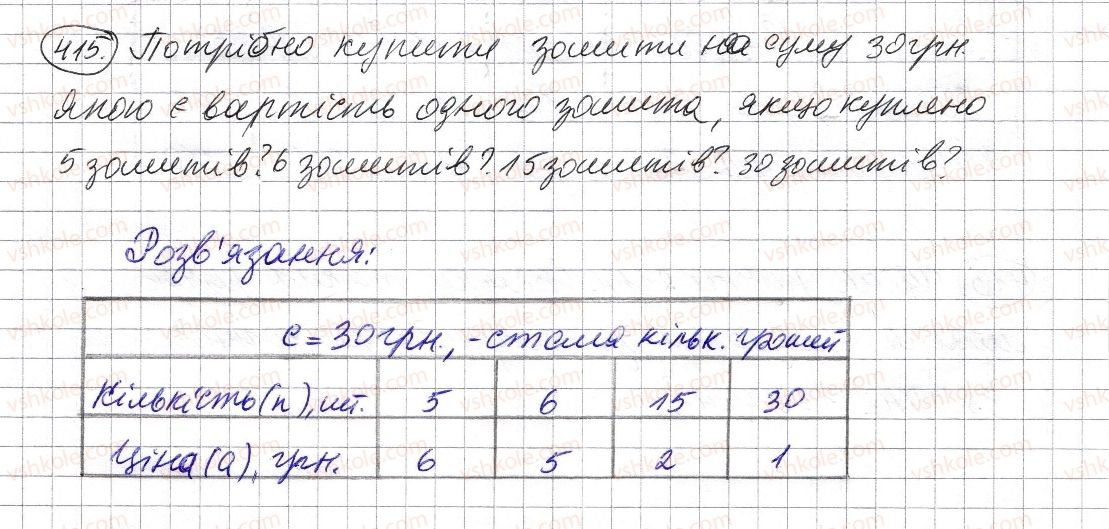 415. Потрібно купити зошити на суму 30 грн.
Якою є вартість одного зошита, якщо куплено
5 зошитів? 6 зошитів? 15 зошитів? 30 зошитів?
Розв'язання:
c = 30 грн., - стала кільк. грошей
Кількість (n), шт. 5 6 15 30
Ціна (a), грн. 6 5 2 1